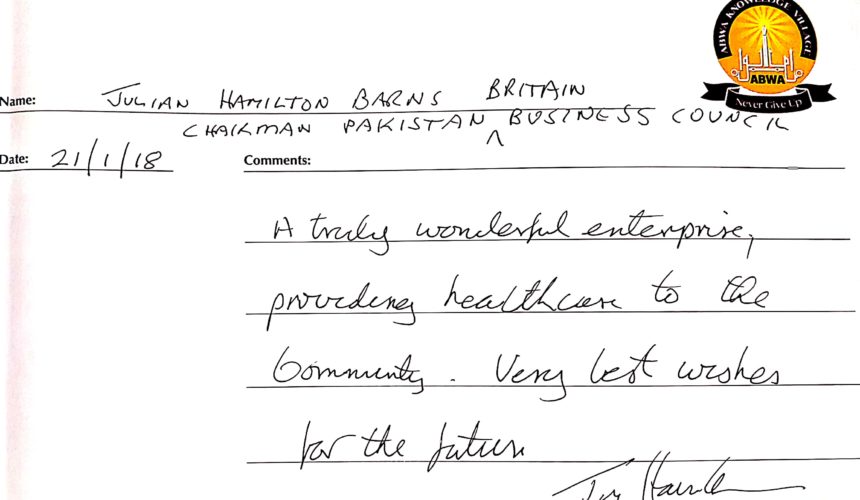 ABWA KNOWLEDGE VILLAGE
ABWA
Never Give Up
Name: JULIAN HAMILTON BARNS
CHAIRMAN PAKISTAN ^ BRITAIN BUSINESS COUNCIL
Date: 21/1/18
Comments:
A truly wonderful enterprise,
providing healthcare to the
Community. Very best wishes
for the future